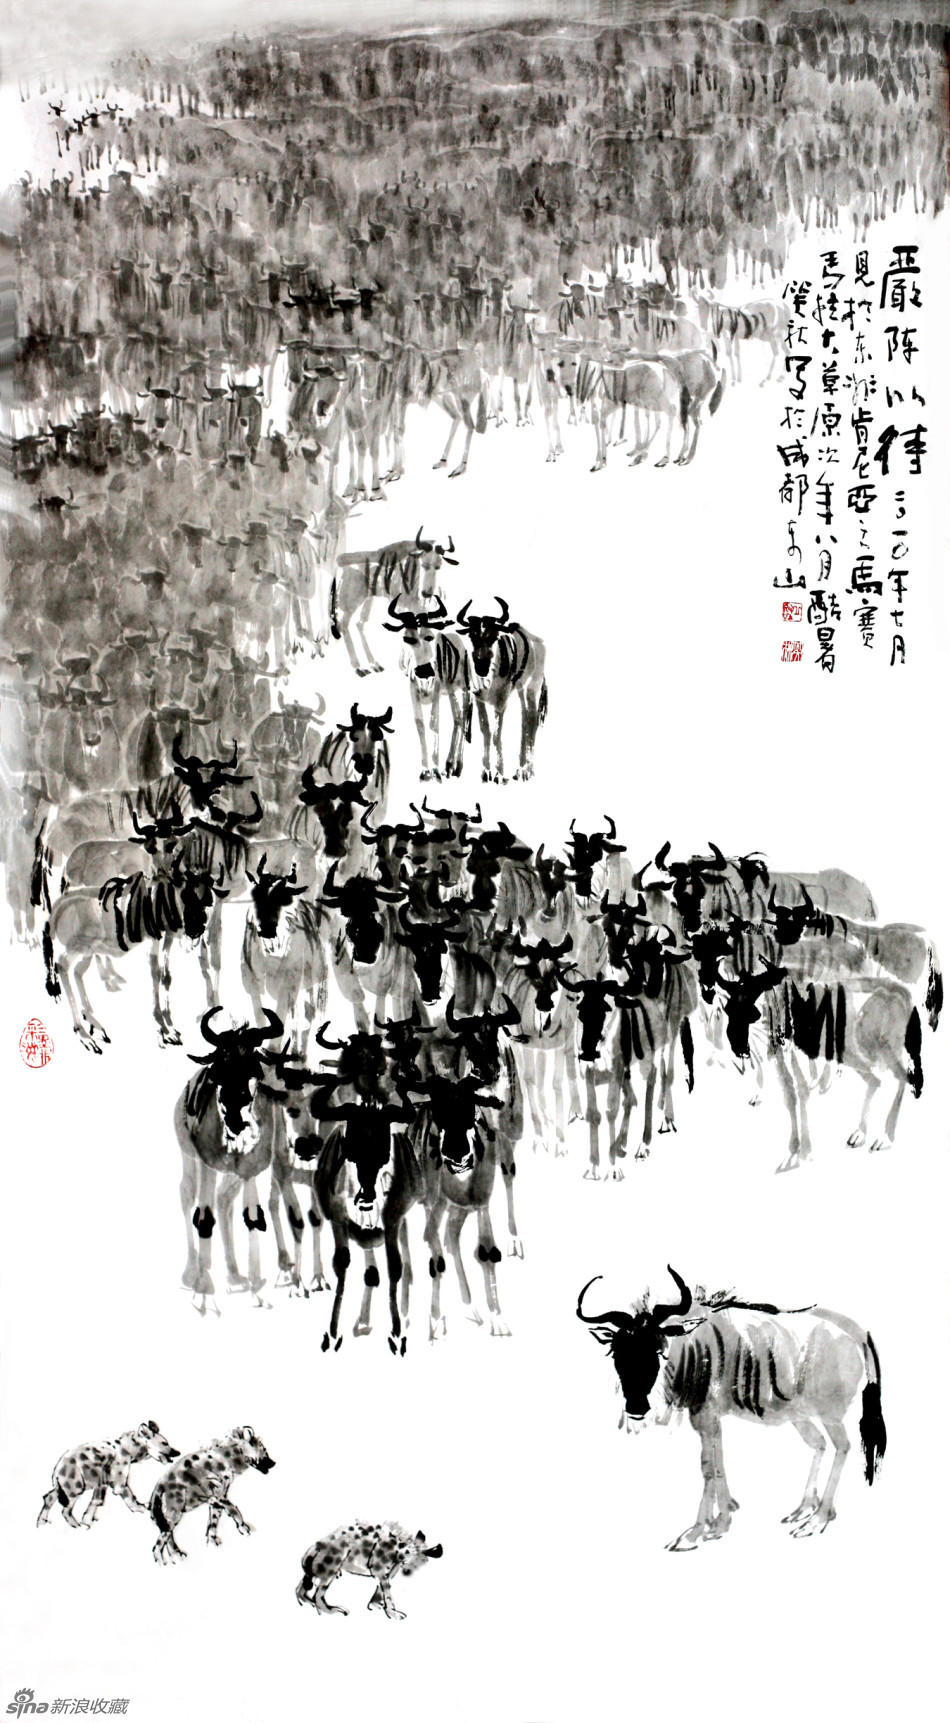 嚴陣以待 二〇一〇年七月
見於东非肯尼亞之馬赛
馬拉大草原次年八月酷暑
癸秋写於成都东山
sina新浪收藏